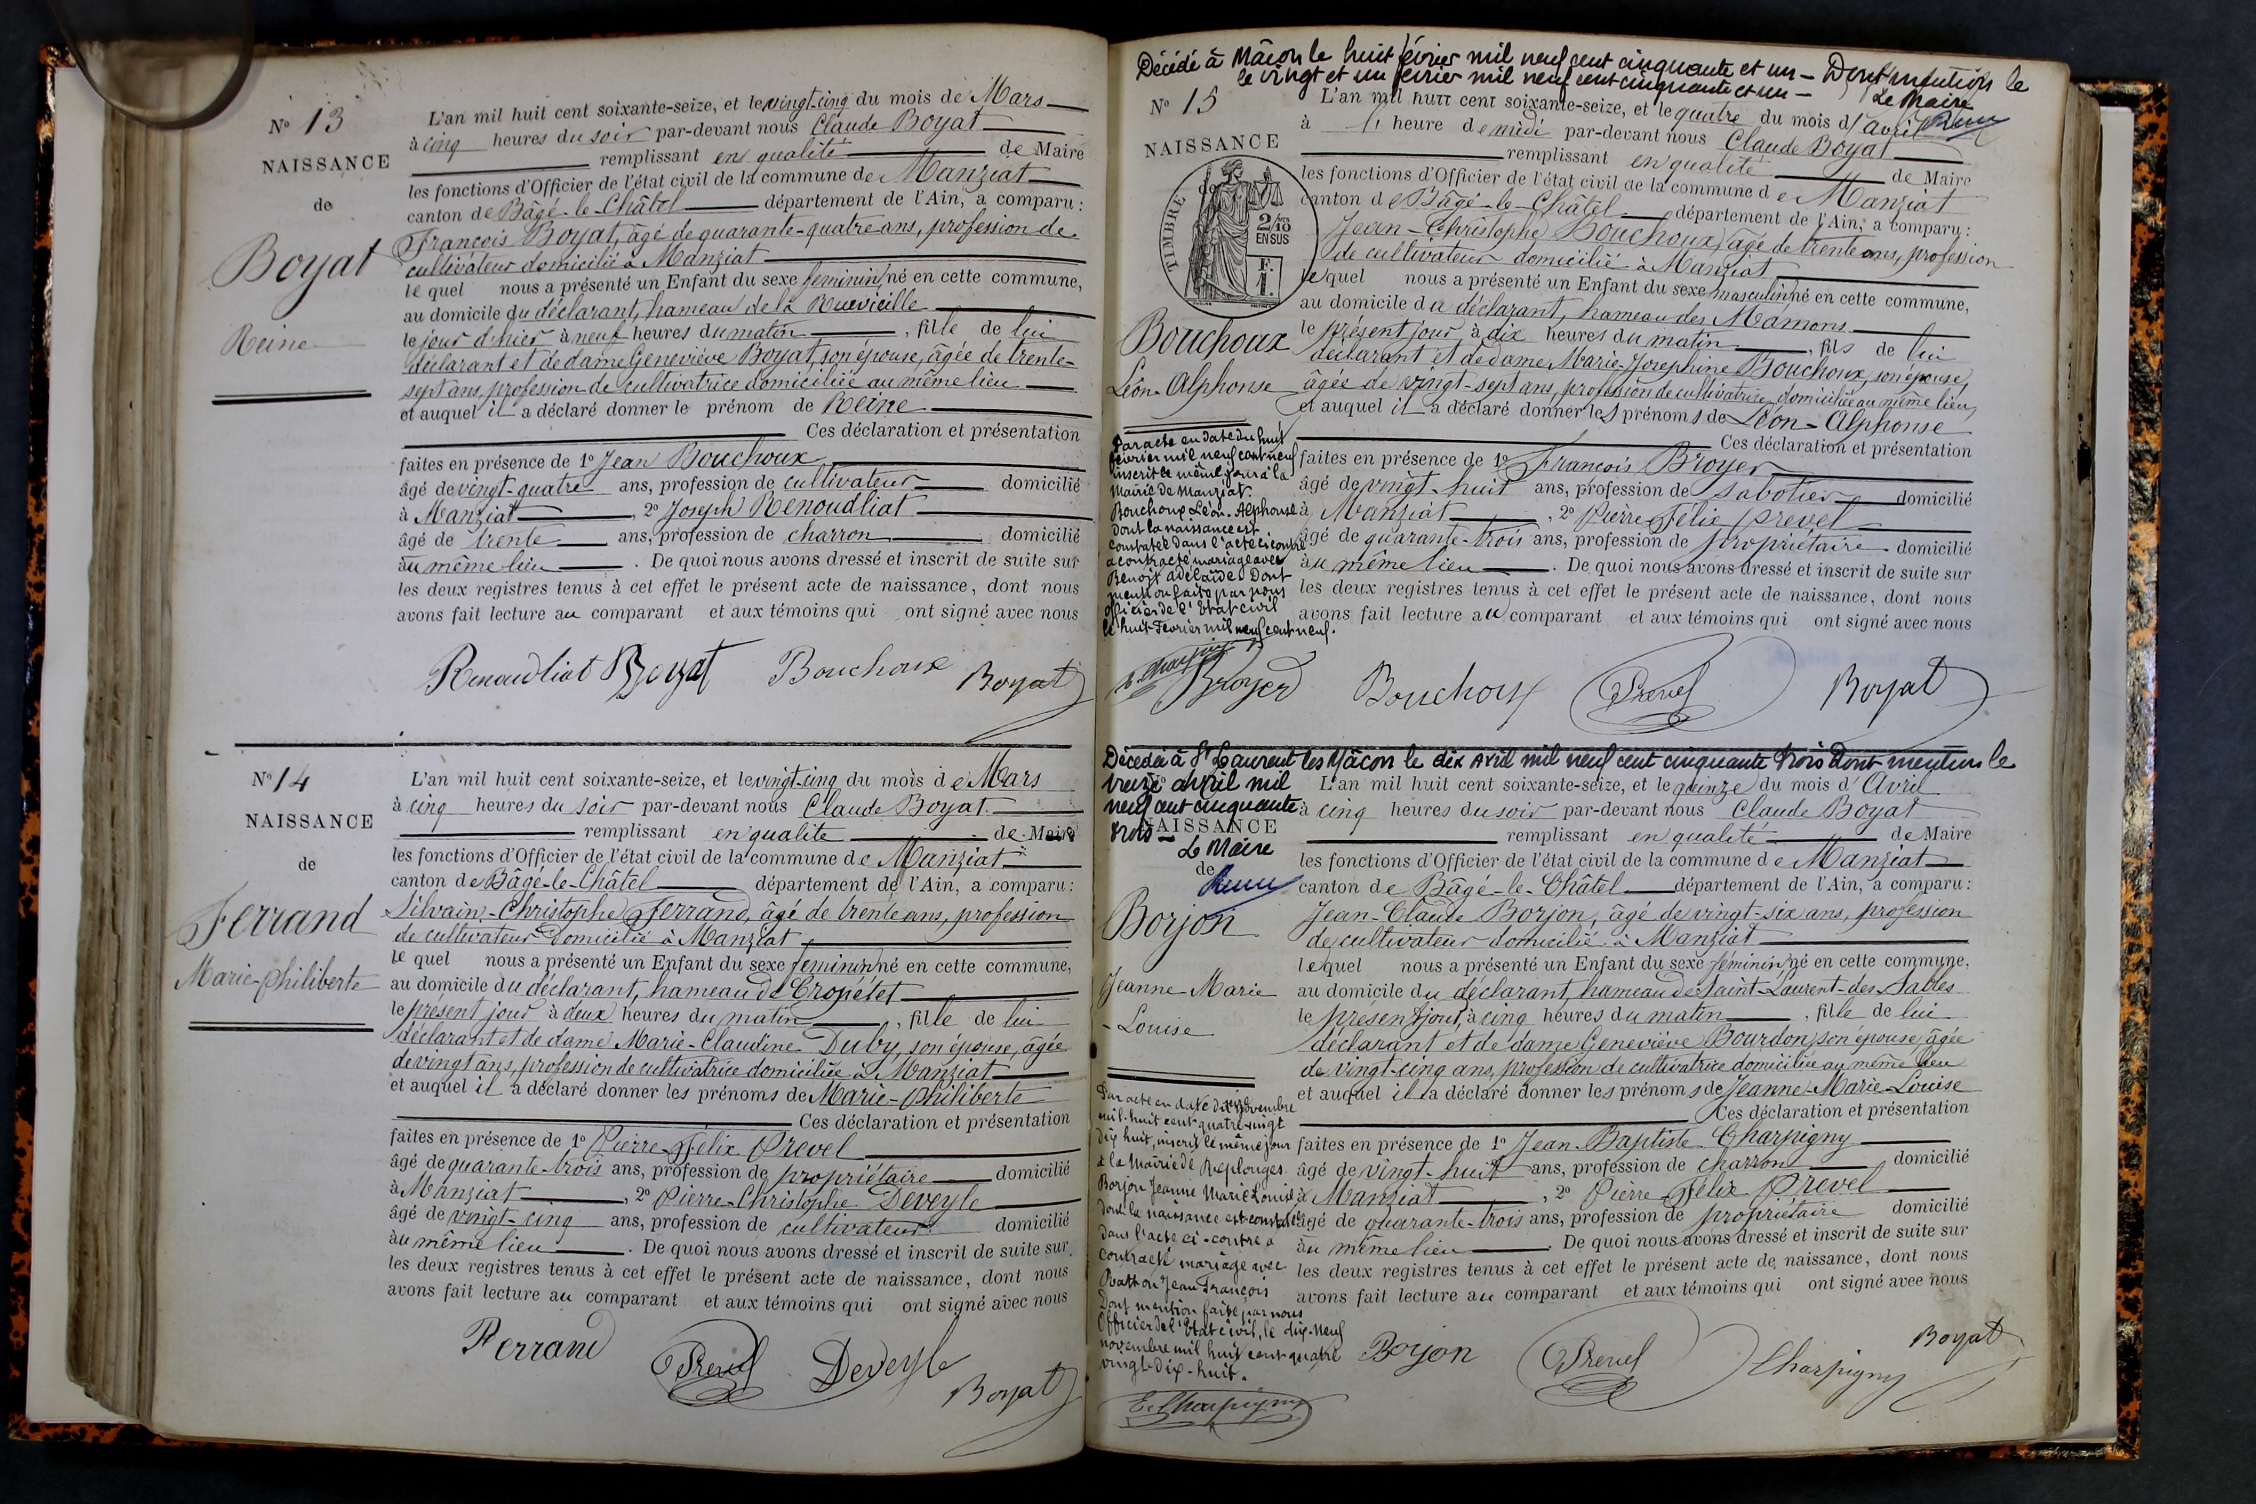 N° 13
NAISSANCE
de
Boyat
Reine
L'an mil huit cent soixante-seize, et le vingt-cinq du mois de Mars
à cinq heures du soir par-devant nous Claude Boyat
remplissant en qualité de Maire
les fonctions d'Officier de l'état civil de la commune de Manziat
canton de Bâgé-le-Châtel département de l'Ain, a comparu :
François Boyat, âgé de quarante-quatre ans, profession de
cultivateur domicilié à Manziat
lequel nous a présenté un Enfant du sexe féminin né en cette commune,
au domicile du déclarant, hameau de la Ruevieille
le jour d'hier à neuf heures du matin, fille de lui
déclarant et de dame Geneviève Boyat, son épouse, âgée de trente-
sept ans, profession de cultivatrice domiciliée au même lieu
et auquel il a déclaré donner le prénom de Reine
Ces déclaration et présentation
faites en présence de 1° Jean Bouchoux
âgé de vingt-quatre ans, profession de cultivateur domicilié
à Manziat, 2° Joseph Renoudliat
âgé de trente ans, profession de charron domicilié
au même lieu. De quoi nous avons dressé et inscrit de suite sur
les deux registres tenus à cet effet le présent acte de naissance, dont nous
avons fait lecture au comparant et aux témoins qui ont signé avec nous
Renoudliat Boyat Bouchoux Boyat
N° 14
NAISSANCE
de
Ferrand
Marie-Philiberte
L'an mil huit cent soixante-seize, et le vingt-cinq du mois de Mars
à cinq heures du soir par-devant nous Claude Boyat
remplissant en qualité de Maire
les fonctions d'Officier de l'état civil de la commune de Manziat
canton de Bâgé-le-Châtel département de l'Ain, a comparu :
Silvain-Christophe Ferrand, âgé de trente ans, profession
de cultivateur domicilié à Manziat
lequel nous a présenté un Enfant du sexe féminin né en cette commune,
au domicile du déclarant, hameau de Cropétet
le présent jour à deux heures du matin, fille de lui
déclarant et de dame Marie-Claudine Duby, son épouse, âgée
de vingt ans, profession de cultivatrice domiciliée à Manziat
et auquel il a déclaré donner les prénoms de Marie-Philiberte
Ces déclaration et présentation
faites en présence de 1° Pierre-Félix Prevel
âgé de quarante-trois ans, profession de propriétaire domicilié
à Manziat, 2° Pierre-Christophe Deveyle
âgé de vingt-cinq ans, profession de cultivateur domicilié
au même lieu. De quoi nous avons dressé et inscrit de suite sur
les deux registres tenus à cet effet le présent acte de naissance, dont nous
avons fait lecture au comparant et aux témoins qui ont signé avec nous
Ferrand Prevel Deveyle Boyat
Décédé à Mâcon le huit février mil neuf cent cinquante et un - Dont mention le
le vingt et un février mil neuf cent cinquante et un -
Le Maire
N° 15
NAISSANCE
de
TIMBRE
2/10
EN SUS
F.
1.
Bouchoux
Léon-Alphonse
L'an mil huit cent soixante-seize, et le quatre du mois d'avril
à heure de midi par-devant nous Claude Boyat
remplissant en qualité de Maire
les fonctions d'Officier de l'état civil de la commune de Manziat
canton de Bâgé-le-Châtel département de l'Ain, a comparu :
Jean-Christophe Bouchoux, âgé de trente ans, profession
de cultivateur domicilié à Manziat
lequel nous a présenté un Enfant du sexe masculin né en cette commune,
au domicile du déclarant, hameau des Mamons
le présent jour, à dix heures du matin, fils de lui
déclarant et de dame Marie-Josephine Bouchoux, son épouse,
âgée de vingt-sept ans, profession de cultivatrice domiciliée au même lieu
et auquel il a déclaré donner les prénoms de Léon-Alphonse
Ces déclaration et présentation
faites en présence de 1° François Broyer
âgé de vingt-huit ans, profession de sabotier domicilié
à Manziat, 2° Pierre-Félix Prevel
âgé de quarante-trois ans, profession de propriétaire domicilié
au même lieu. De quoi nous avons dressé et inscrit de suite sur
les deux registres tenus à cet effet le présent acte de naissance, dont nous
avons fait lecture au comparant et aux témoins qui ont signé avec nous
Par acte en date du huit
février mil neuf cent neuf
inscrit le même jour à la
Mairie de Manziat
Bouchoux Léon-Alphonse
dont la naissance est
constatée dans l'acte ci contre
a contracté mariage avec
Benoît Adélaïde Dont
mention faite par nous
officier de l'Etat civil
le huit Février mil neuf cent neuf.
Broyer Bouchoux Prevel Boyat
Décédée à St Laurent les Mâcon le dix avril mil neuf cent cinquante trois Dont mention le
treize avril mil
neuf cent cinquante
trois -
Le Maire
NAISSANCE
de
Borjon
Jeanne-Marie
-Louise
L'an mil huit cent soixante-seize, et le quinze du mois d'Avril
à cinq heures du soir par-devant nous Claude Boyat
remplissant en qualité de Maire
les fonctions d'Officier de l'état civil de la commune de Manziat
canton de Bâgé-le-Châtel département de l'Ain, a comparu :
Jean-Claude Borjon, âgé de vingt-six ans, profession
de cultivateur domicilié à Manziat
lequel nous a présenté un Enfant du sexe féminin né en cette commune,
au domicile du déclarant, hameau de Saint-Laurent-des-Sables
le présent jour, à cinq heures du matin, fille de lui
déclarant et de dame Geneviève Bourdon, son épouse, âgée
de vingt-cinq ans, profession de cultivatrice domiciliée au même lieu
et auquel il a déclaré donner les prénoms de Jeanne-Marie-Louise
Ces déclaration et présentation
faites en présence de 1° Jean-Baptiste Charpigny
âgé de vingt-huit ans, profession de charron domicilié
à Manziat, 2° Pierre-Félix Prevel
âgé de quarante-trois ans, profession de propriétaire domicilié
au même lieu. De quoi nous avons dressé et inscrit de suite sur
les deux registres tenus à cet effet le présent acte de naissance, dont nous
avons fait lecture au comparant et aux témoins qui ont signé avec nous
Par acte en date du novembre
mil-huit cent quatre-vingt
dix huit, inscrit le même jour
à la Mairie de Replonges
Borjon Jeanne Marie Louise
dont la naissance est constatée
dans l'acte ci-contre a
contracté mariage avec
Jean François
Dont mention faite par nous
Officier de l'Etat civil, le dix-neuf
novembre mil huit cent quatre
vingt-dix-huit.
E. Charpigny
Borjon Prevel Charpigny Boyat